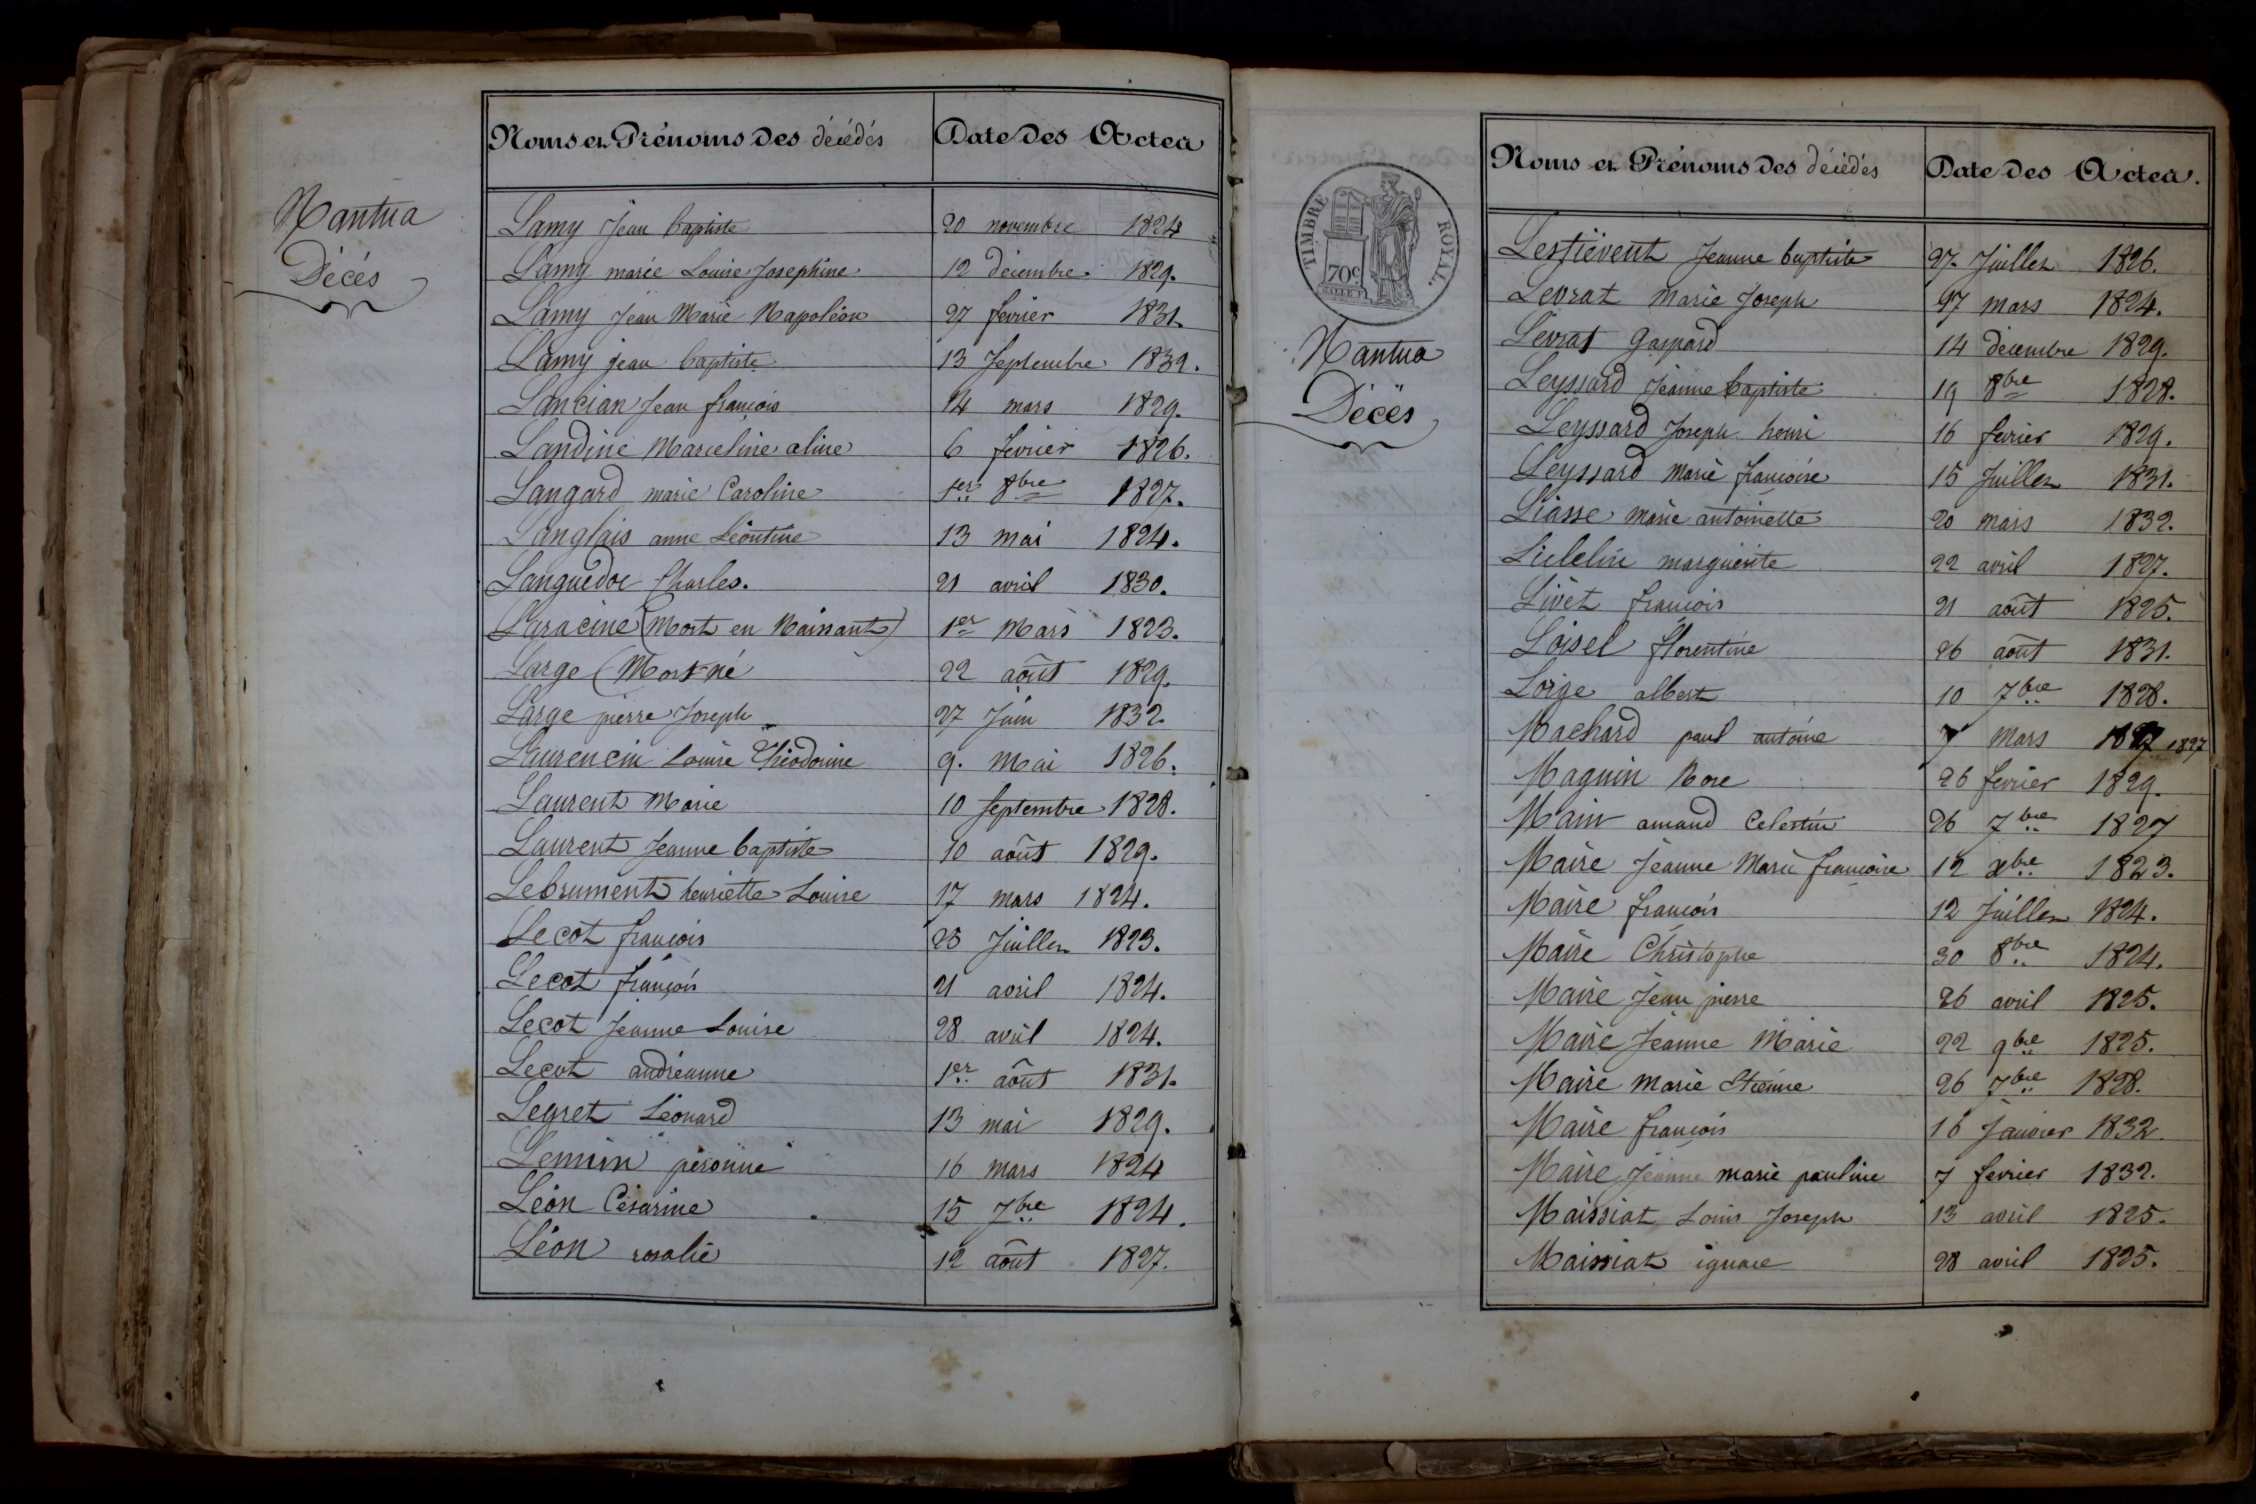 Nantua
Décés
Noms et Prénoms Des décédés Date Des Actes
Lamy Jean baptiste 20 novembre 1824
Lamy marie Louise Josephine 12 décembre 1829.
Lamy Jean Marie Napoléon 27 fevrier 1831
Lamy jean baptiste 13 Septembre 1832.
Lancian Jean françois 14 mars 1829.
Landine Marceline aline 6 fevrier 1826.
Langard marie Caroline 1er 8bre 1827.
Langlais anne Léontine 13 mai 1824.
Languedoc Charles. 21 avril 1830.
Laracine (Mort en Naissant) 1er Mars 1823.
Large (Mort né 22 août 1829.
Large pierre Joseph 27 Juin 1832.
Laurencin Louise Théodorine 9. Mai 1826.
Laurent Marie 10 Septembre 1828.
Laurent Jeanne baptiste 10 août 1829.
Lebrument henriette Louise 17 mars 1824.
Lecot françois 25 Juillet 1823.
Lecot françois 21 avril 1824.
Lecot Jeanne Louise 28 avril 1824.
Lecot andréanne 1er août 1831.
Legret Léonard 13 mai 1829.
Lemin péronne 16 mars 1824
Léon Césarine 15 7bre 1824.
Léon rosalie 12 août 1827.
TIMBRE ROYAL.
70c
Nantua
Décès
Noms et Prénoms Des décédés Date Des Actes.
Lestiévent Jeanne baptiste 27 Juillet 1826.
Levrat Marie Joseph 17 mars 1824.
Levrat Gaspard 14 décembre 1829.
Leyssard Jeanne baptiste 19 8bre 1828.
Leyssard Joseph henri 16 fevrier 1829.
Leyssard Marie françoise 15 Juillet 1831.
Liasse Marie antoinette 20 mars 1832.
marguerite 22 avril 1827.
Livet françois 21 août 1825.
Loisel florentine 26 août 1831.
Lorge albert 10 7bre 1828.
Machard paul antoine 7 Mars 1827 1827
Magnin Rose 26 fevrier 1829.
Main amand Celestin 26 7bre 1827
Maire Jeanne Marie françoise 12 xbre 1823.
Maire françois 12 Juillet 1824.
Maire Christophe 30 8bre 1824.
Maire Jean pierre 26 avril 1825.
Maire Jeanne Marie 22 9bre 1825.
Maire Marie Etienne 26 7bre 1828.
Maire françois 16 Janvier 1832
Maire Jeanne marie pauline 7 fevrier 1832.
Maissiat Louis Joseph 13 avril 1825.
Maissiat ignace 28 avril 1825.